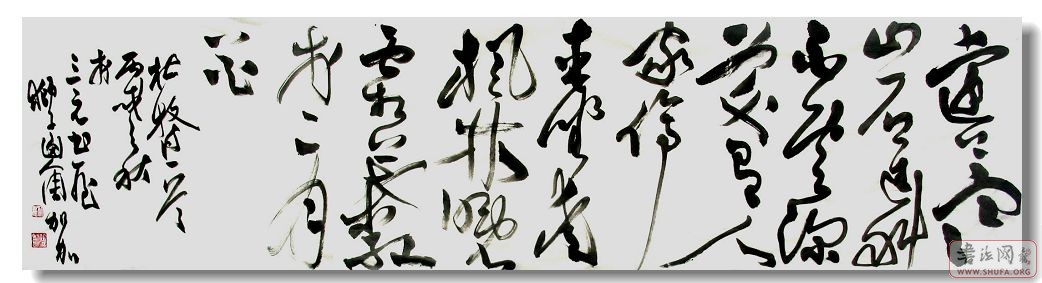 遠上寒
山石徑斜
白雲深
處有人
家停
車坐愛
楓林晚
霜葉紅
於二月
花
杜牧詩一首
丙戌之秋
於
三元
書法网
WWW.SHUFA.ORG